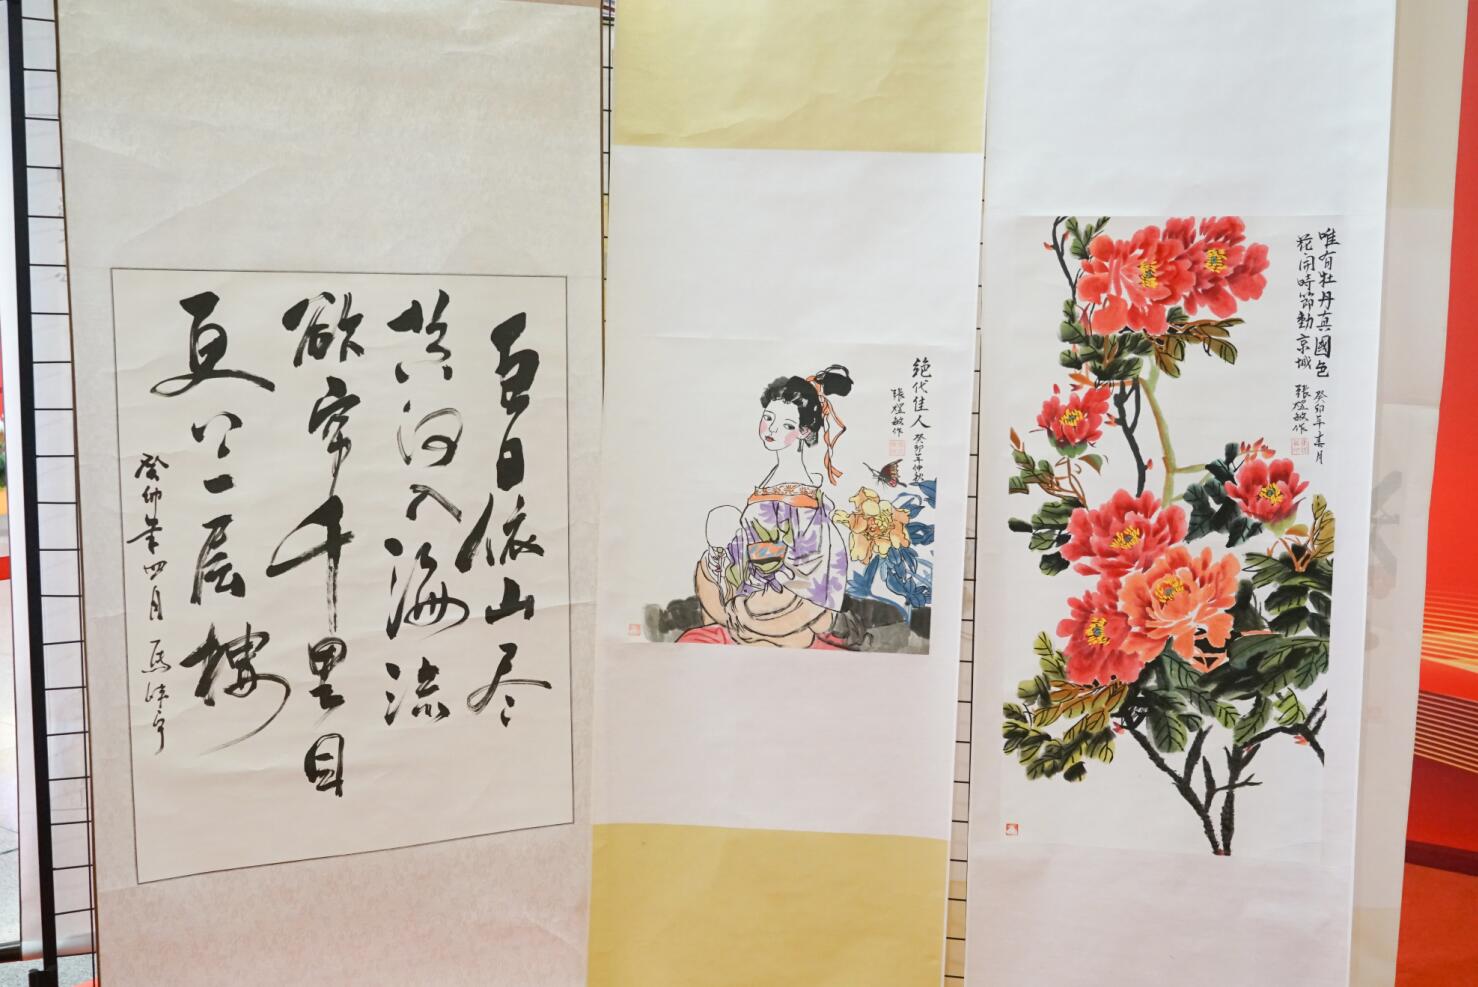 白日依山尽
黄河入海流
欲穷千里目
更上一层楼
癸卯年四月
绝代佳人 癸卯年仲秋
張煜敏作
唯有牡丹真國色 癸卯年春月
花開時節動京城 張煜敏作